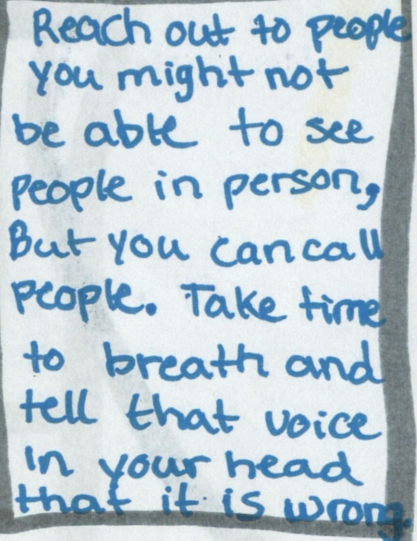 Reach out to people
you might not
be able to see
people in person,
But you can call
people. Take time
to breath and
tell that voice
in your head
that it is wrong